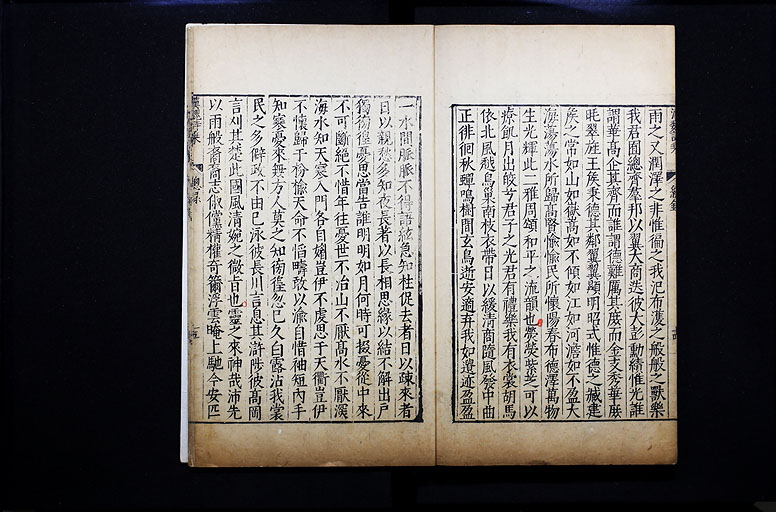 雨之又潤澤之非惟徧之我氾布護之般般之獸樂
我君囿總齊羣邦以翼大商迭彼大彭勳績惟光誰
謂華髙企其齊而誰謂德難厲其庶而金支秀華庶
旄翠旌王侯秉德其鄰翼翼顯明昭式惟德之臧建
侯之常如山如嶽髙如不傾如江如河澹如不盈大
海湯湯水所歸髙賢愉愉民所懷陽春布德澤萬物
生光輝此二雅周頌和平之流韻也煢煢紫芝可以
療飢月出皎兮君子之光君有禮樂我有衣裳胡馬
依北風越鳥巢南枝衣帶日以緩清商隨風發中曲
正徘徊秋蟬鳴樹間玄鳥逝安適弃我如遺迹盈盈
一水間脈脈不得語絃急知柱促去者日以疎來者
日以親愁多知夜長著以長相思緣以結不解出戶
獨徬徨憂思當告誰明明如月何時可掇憂從中來
不可斷絕不惜年往憂世不治山不厭髙水不厭深
海水知天寒入門各自媚豈伊不虔思于天衢豈伊
不懷歸于枌榆天命不慆疇敢以渝自惜袖短內手
知寒憂來無方人莫之知徬徨忽已久白露沾我裳
民之多僻政不由己泳彼長川言息其滸陟彼髙岡
言刈其楚此國風清婉之微旨也靈之來神哉沛先
以雨般裔裔志俶儻精權奇籋浮雲晻上馳今安匹